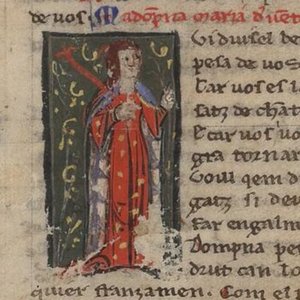 de vos. Madopna maria d'uent
Gi duisel be
pesa de vos
Car vos es l
satz de chat
E car vos vo
gra tornar
qem di
gatz si deu
far engalm
Dompna pe
drut can lo
quier franzamen. Com el